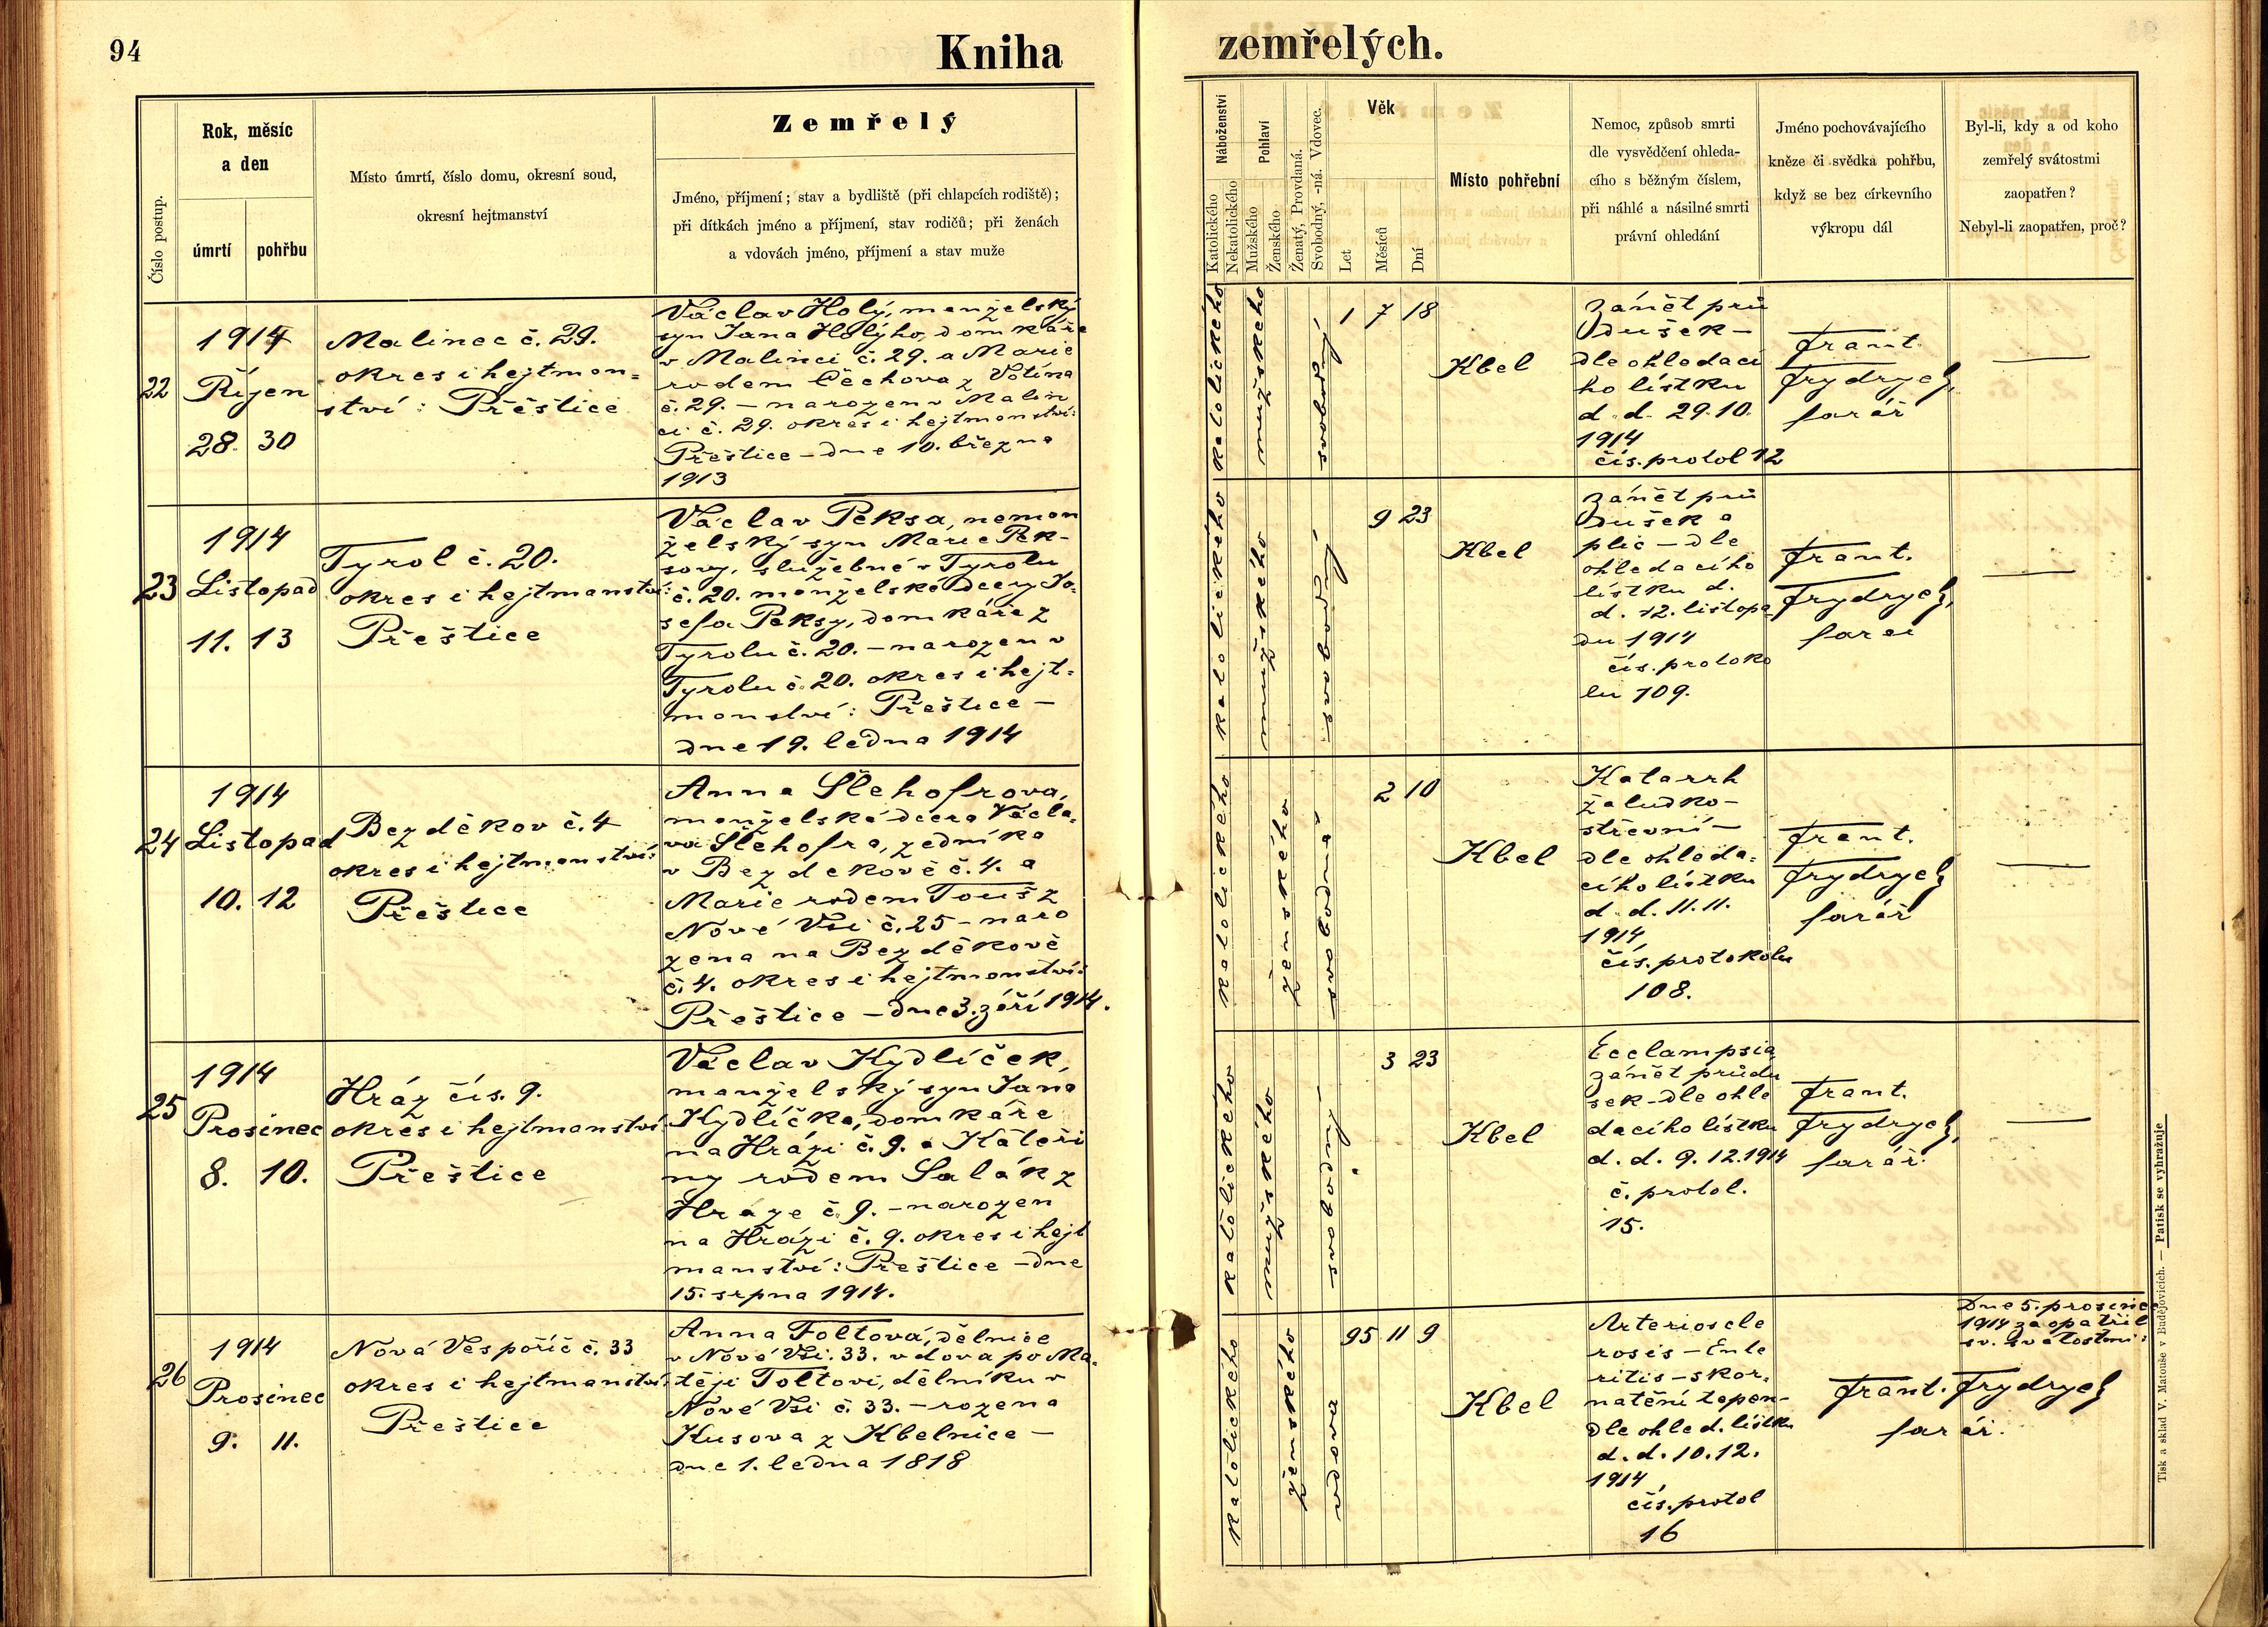 94
Kniha
zemřelých.
Číslo postup.
Rok, měsíc
a den
úmrtí
pohřbu
Místo úmrtí, číslo domu, okresní soud,
okresní hejtmanství
Zemřelý
Jméno, příjmení; stav a bydliště (při chlapcích rodiště);
při dítkách jméno a příjmení, stav rodičů; při ženách
a vdovách jméno, příjmení a stav muže
Náboženství
Katolického
Nekatolického
Pohlaví
Mužského
Ženského
Ženatý, Provdaná.
Svobodný, -ná. Vdovec.
Věk
Let
Měsíců
Dní
Místo pohřební
Nemoc, způsob smrti
dle vysvědčení ohleda-
cího s běžným číslem,
při náhlé a násilné smrti
právní ohledání
Jméno pochovávajícího
kněze či svědka pohřbu,
když se bez církevního
výkropu dál
Byl-li, kdy a od koho
zemřelý svátostmi
zaopatřen?
Nebyl-li zaopatřen, proč?
22
1914
Říjen
28. 30
Malinec č. 29.
okres i hejtman=
ství: Přeštice
Václav Holý, manželský
syn Jana Holýho, domkáře
v Malinci č. 29. a Marie
rodem Čechova z Votína
č. 29. – narozen v Malin
ci č. 29. okres i hejtmanství:
Přeštice – dne 10. března
1913
katolického
mužského
svobodný
1 7 18
Kbel
Zánět prů
dušek –
dle ohledací
ho lístku
d. d. 29.10.
1914
čís. protol 12
Frant.
Frydrych,
farář
—
23
1914
Listopad
11. 13
Tyrol č. 20.
okres i hejtmanství:
Přeštice
Václav Peksa, neman
želský syn Marie Pek-
sovy, služebné v Tyrolu
č. 20. manželské dcery Jo-
sefa Peksy, domkáře z
Tyrolu č. 20. – narozen v
Tyrolu č. 20. okres i hejt-
manství: Přeštice –
dne 19. ledna 1914
katolického
mužského
svobodný
9 23
Kbel
Zánět prů
dušek a
plic – dle
ohledacího
lístku d.
d. 12. listopa
du 1914
čís. protoko
lu 109.
Frant.
Frydrych,
farář
—
24
1914
Listopad
10. 12
Bezděkov č. 4
okres i hejtmanství:
Přeštice
Anna Šlehofrova,
manželská dcera Václa-
va Šlehofra, zedníka
v Bezdekově č. 4. a
Marie rodem Touš z
Nové Vsi č. 25 – naro
zena na Bezděkově
č. 4. okres i hejtmanství:
Přeštice – dne 3. září 1914.
katolického
ženského
svobodná
2 10
Kbel
Katarrh
žaludko-
střevní –
dle ohleda-
cího lístku
d. d. 11.11.
1914
čís. protokolu
108.
Frant.
Frydrych
farář
—
25
1914
Prosinec
8. 10.
Hráz čís. 9.
okres i hejtmanství
Přeštice
Václav Kydlíček,
manželský syn Jana
Kydlíčka, domkáře
na Hrázi č. 9. a Kateři
ny rodem Salák z
Hráze č. 9. – narozen
na Hrázi č. 9. okres i hejt
manství: Přeštice – dne
15. srpna 1914.
katolického
mužského
svobodný
3 23
Kbel
Ecclampsia
zánět průdu
šek – dle ohle
dacího lístku
d. d. 9. 12. 1914
č. protol.
15.
Frant.
Frydrych,
farář.
—
26
1914
Prosinec
9. 11.
Nová Ves poříč č. 33
okres i hejtmanství:
Přeštice
Anna Toltová, dělnice
v Nové Vsi. 33. vdova po Ma-
těji Toltovi, dělníku v
Nové Vsi č. 33. – rozena
Kusova z Kbelnice –
dne 1. ledna 1818
katolického
ženského
vdova
95 11 9
Kbel
Arterioscle
rosis – Ente
ritis – skor-
natění tepen-
dle ohled. lístku
d. d. 10. 12.
1914
čís. protol
16
Frant. Frydrych
farář.
Dne 5. prosince
1914 zaopatřil
sv. svátostmi:
Tisk a sklad V. Matouše v Budějovicích. — Patisk se vyhražuje